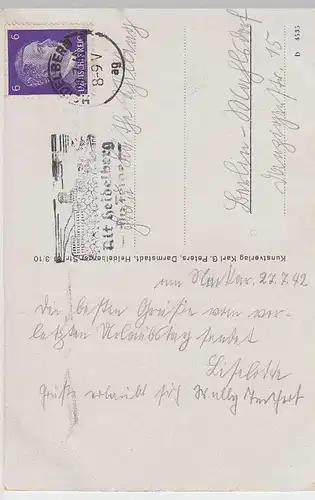 6
6
DEUTSCHES REICH
HEIDELBERG
8-9 V
ag
Alt Heidelberg
du feine
Berlin-Mahlsdorf
15
D 4535
Kunstverlag Karl G. Peters, Darmstadt, Heidelberger Straße 3/10
am Neckar. 27.7.42
Die besten Grüße vom vor-
letzten Urlaubstag sendet
Liselotte
Grüße erlaubt sich Wally